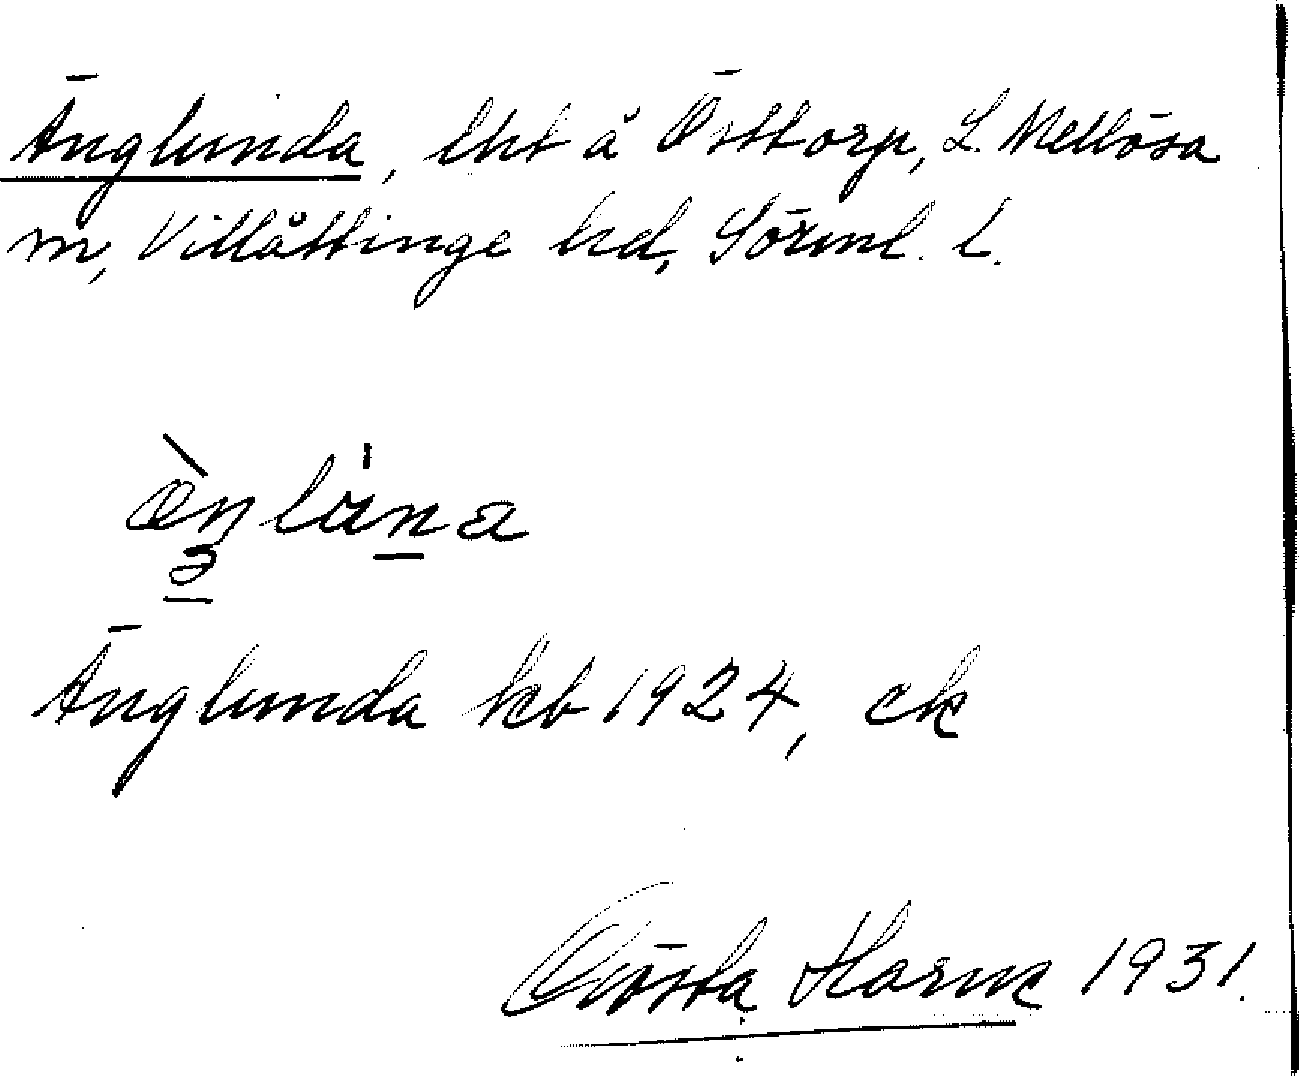 Änglunda, lht å Östtorp, L. Mellösa
sn, Villåttinge hd, Sörml. l.
Änglunda kb 1924, ek
Gösta Harne 1931.